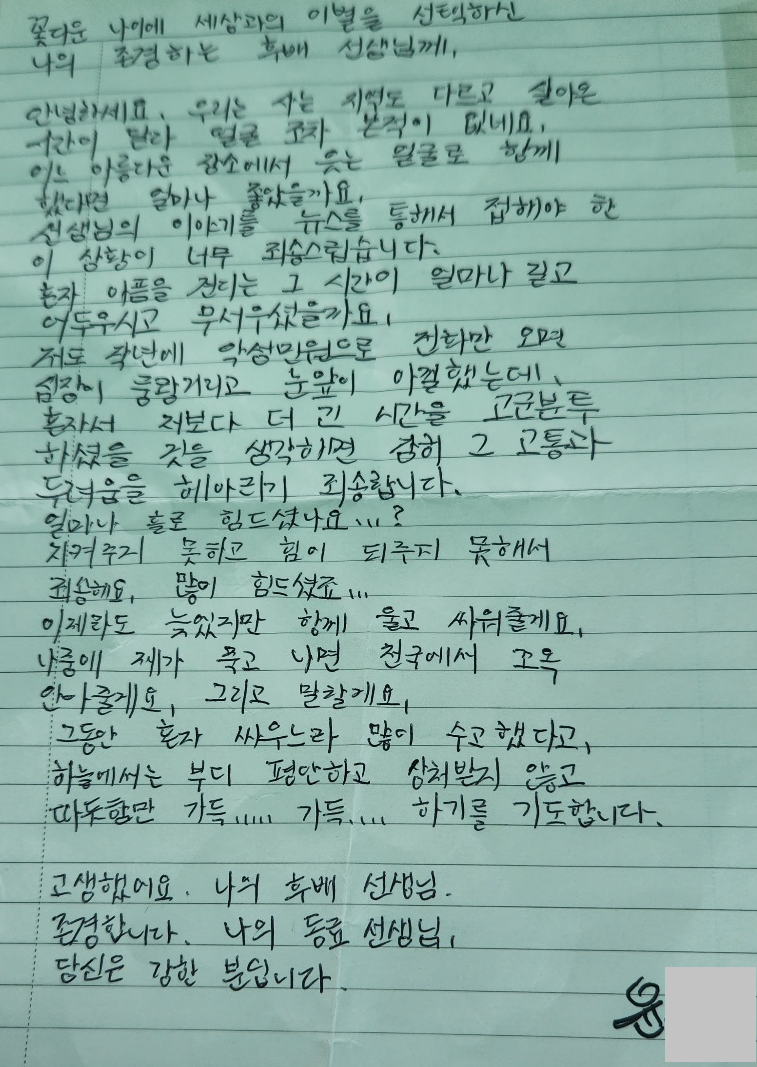 꽃다운 나이에 세상과의 이별을 선택하신
나의 존경하는 후배 선생님께,
안녕하세요. 우리는 사는 지역도 다르고 살아온
시간이 달라 얼굴 조차 본적이 없네요.
어느 아름다운 장소에서 웃는 얼굴로 함께
했다면 얼마나 좋았을까요.
선생님의 이야기를 뉴스를 통해서 접해야 한
이 상황이 너무 죄송스럽습니다.
혼자 아픔을 견디는 그 시간이 얼마나 길고
어두우시고 무서우셨을까요.
저도 작년에 악성민원으로 전화만 오면
심장이 쿵쾅거리고 눈앞이 아찔했는데,
혼자서 저보다 더 긴 시간을 고군분투
하셨을 것을 생각하면 감히 그 고통과
두려움을 헤아리기 죄송합니다.
얼마나 홀로 힘드셨나요...?
지켜주지 못하고 힘이 되주지 못해서
죄송해요. 많이 힘드셨죠...
이제라도 늦었지만 함께 울고 싸워줄게요.
나중에 제가 죽고 나면 천국에서 꼬옥
안아줄게요. 그리고 말할게요.
그동안 혼자 싸우느라 많이 수고했다고,
하늘에서는 부디 평안하고 상처받지 않고
따뜻함만 가득..... 가득.... 하기를 기도합니다.
고생했어요. 나의 후배 선생님.
존경합니다. 나의 동료 선생님.
당신은 강한 분입니다.